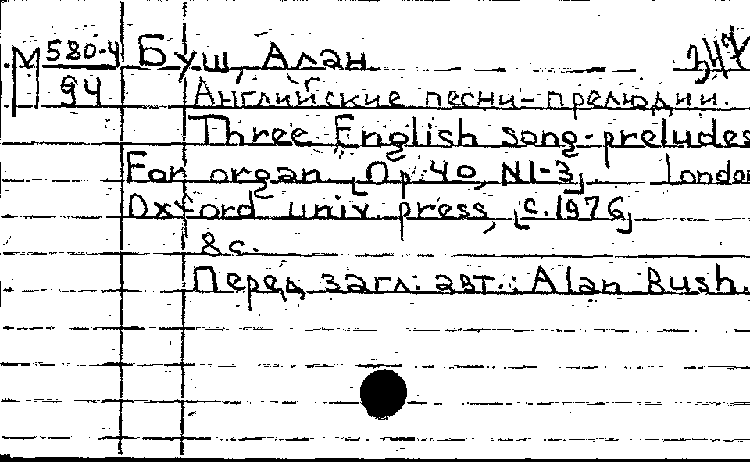 М 580-4 Буш, Алан 347
94 Английские песни-прелюдии.
Three English song-preludes
For organ. [Op. 40, N1-3]. London
Oxford univ. press, [c. 1976]
8 c.
Перед загл. авт.: Alan Bush.